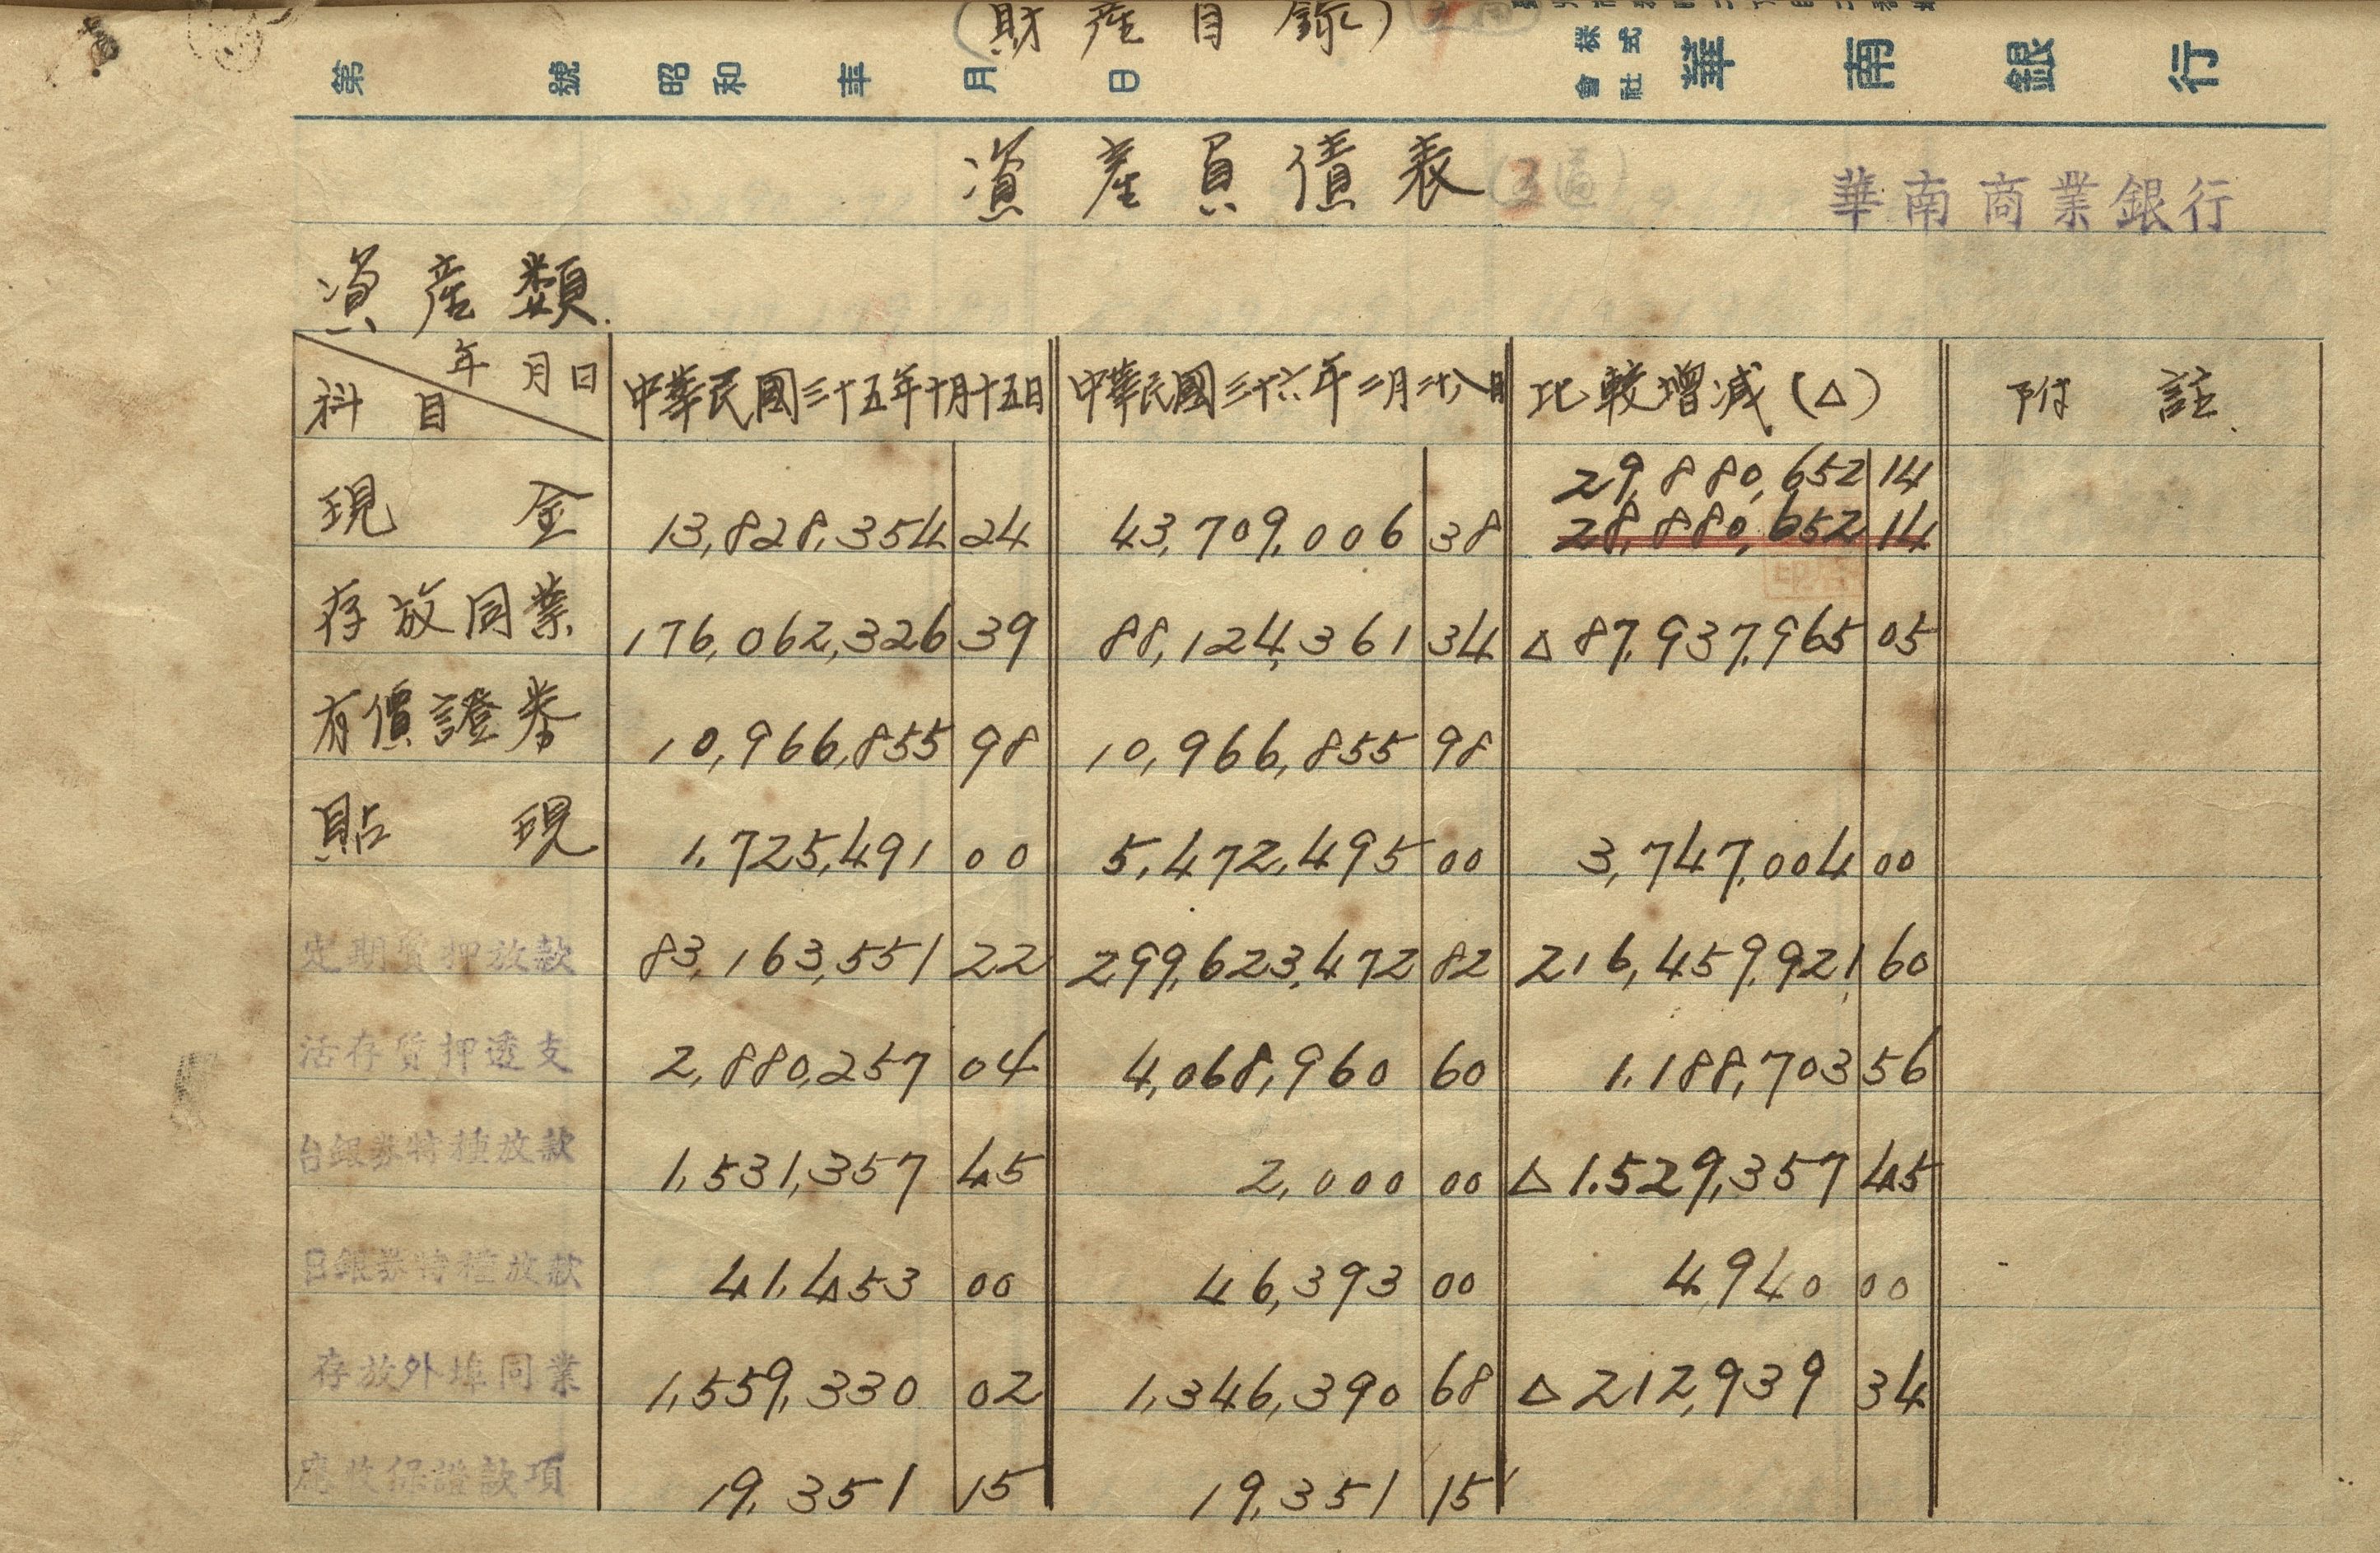 (財産目錄)
第 號 昭和 年 月 日 株式會社 華南銀行
資產負債表
華南商業銀行
資產類
年月日 科目 中華民國三十五年十月十五日 中華民國三十六年二月廿八日 比較增減(△) 附註
29,880,652 14
現金 13,828,354 24 43,709,006 38 28,880,652 14
存放同業 176,062,326 39 88,124,361 34 △ 87,937,965 05
有價證券 10,966,855 98 10,966,855 98
貼現 1,725,491 00 5,472,495 00 3,747,004 00
定期質押放款 83,163,551 22 299,623,472 82 216,459,921 60
活存質押透支 2,880,257 04 4,068,960 60 1,188,703 56
台銀券特種放款 1,531,357 45 2,000 00 △ 1,529,357 45
日銀券特種放款 41,453 00 46,393 00 4,940 00
存放外埠同業 1,559,330 02 1,346,390 68 △ 212,939 34
應收保證款項 19,351 15 19,351 15